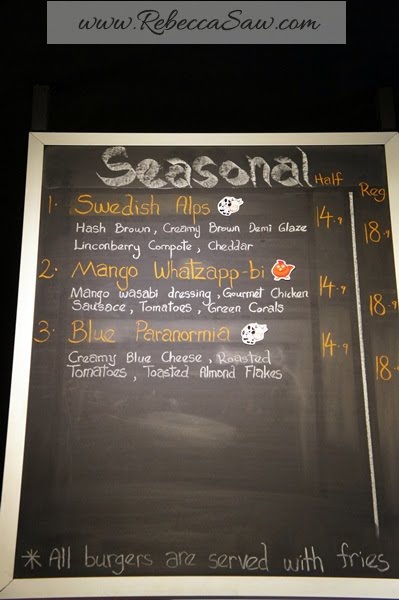 www.RebeccaSaw.com
Seasonal
Half Reg
1. Swedish Alps 14.9 18.9
Hash Brown, Creamy Brown Demi Glaze
Linconberry Compote, Cheddar
2. Mango Whatzapp-bi 14.9 18.9
Mango wasabi dressing, Gourmet Chicken
Sausace, Tomatoes, Green Corals
3. Blue Paranormia 14.9 18.
Creamy Blue Cheese, Roasted
Tomatoes, Toasted Almond Flakes
* All burgers are served with fries